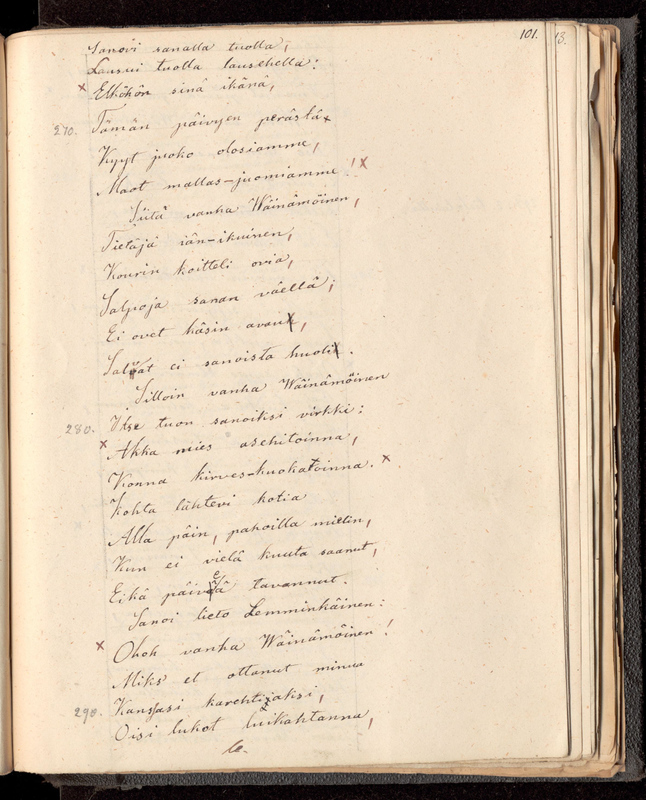 101. 13.
Sanovi sanalla tuolla,
Lausui tuolla lausehella:
x Elköhön sinä ikänä,
270. Tämän päivyen perästä x
Kyyt juoko olosiamme,
Maot mallas-juomiamme! x
Siitä vanha Wäinämöinen,
Tietäjä iän-ikuinen,
Kourin koitteli ovia,
Salpoja sanan väellä;
Ei ovet käsin avau,
Salvat ei sanoista huoli.
Silloin vanha Wäinämöinen
280. Itse tuon sanoiksi virkki:
x Akka mies asehitoinna,
Konna kirves-kuokatoinna. x
Kohta lähtevi kotia
Alla päin, pahoilla mielin,
Kun ei vielä kuuta saanut,
Eikä päiveä tavannut.
Sanoi lieto Lemminkäinen:
x Ohoh vanha Wäinämöinen!
Miks' et ottanut minua
290. Kanssasi karehtijaksi,
Oisi lukot luikahtanna,